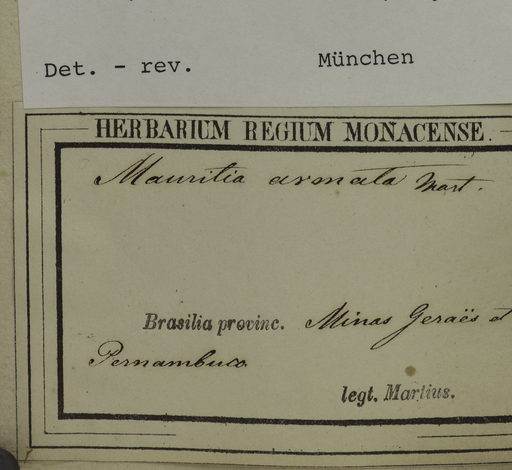 Det. - rev. München
HERBARIUM REGIUM MONACENSE.
Mauritia armata Mart.
Brasilia provinc. Minas Geraës et
Pernambuco
legt. Martius.